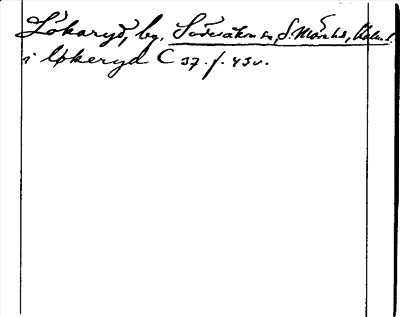 Lökaryd, by. Söderåkra sn, S. Möre hd, Kalm. l.
i lökeryd C 37. f. 43v.